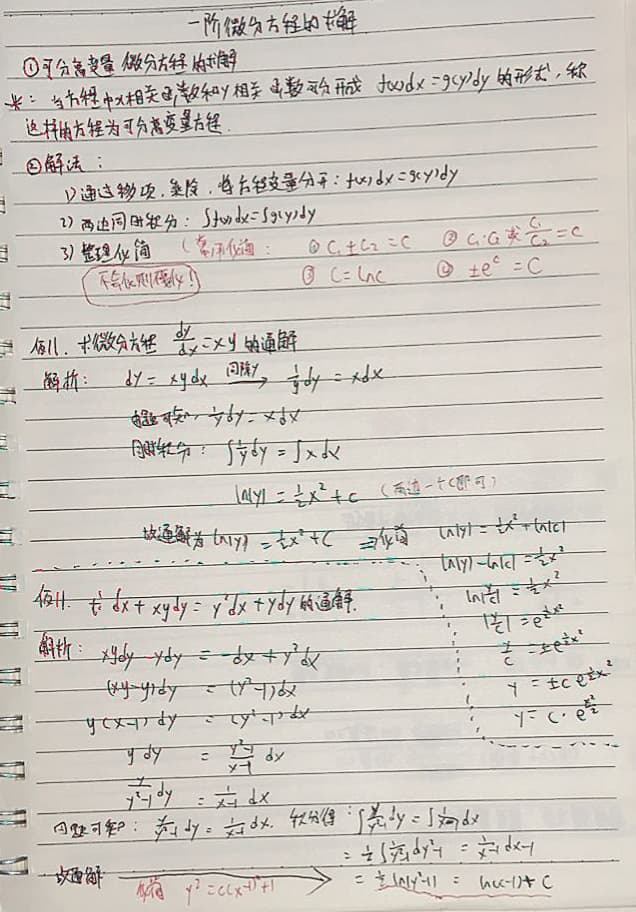 一阶微分方程的求解
①可分离变量微分方程的求解
*: 当方程中x相关函数和y相关函数可分开成 f(x)dx=g(y)dy 的形式,称
这样的方程为可分离变量方程.
②解法:
1)通过移项,乘除,将方程变量分开: f(x)dx=g(y)dy
2)两边同时积分: ∫f(x)dx=∫g(y)dy
3)整理化简 (常用化简: ① C₁±C₂=C ② C₁·C₂或C₁/C₂=C
不会化则不化! ③ C=lnc ④ ±e^c=C
例1. 求微分方程 dy/dx=xy 的通解
解析: dy=xydx 同除y→ 1/y dy=xdx
由题可知: 1/y dy=xdx
同时积分: ∫1/y dy=∫xdx
ln|y|=1/2x²+c (两边一个C即可)
故通解为ln|y|=1/2x²+C ⇒化简 ln|y|=1/2x²+ln|c|
ln|y|-ln|c|=1/2x²
ln|y/c|=1/2x²
|y/c|=e^(1/2x²)
y/c=±e^(1/2x²)
y=±ce^(1/2x²)
y=C·e^(x²/2)
例1. 求 dx+xydy=y²dx+ydy的通解.
解析: xydy-ydy=-dx+y²dx
(xy-y)dy=(y²-1)dx
y(x-1)dy=(y²-1)dx
ydy=(y²-1)/(x-1) dx
y/(y²-1) dy=1/(x-1) dx
由题可知: y/(y²-1) dy=1/(x-1) dx. 积分得: ∫y/(y²-1) dy=∫1/(x-1) dx
=1/2∫1/(y²-1) dy²-1=1/(x-1) dx-1
故通解 =1/2ln|y²-1|=ln(x-1)+C
化简 y²=c(x-1)²+1